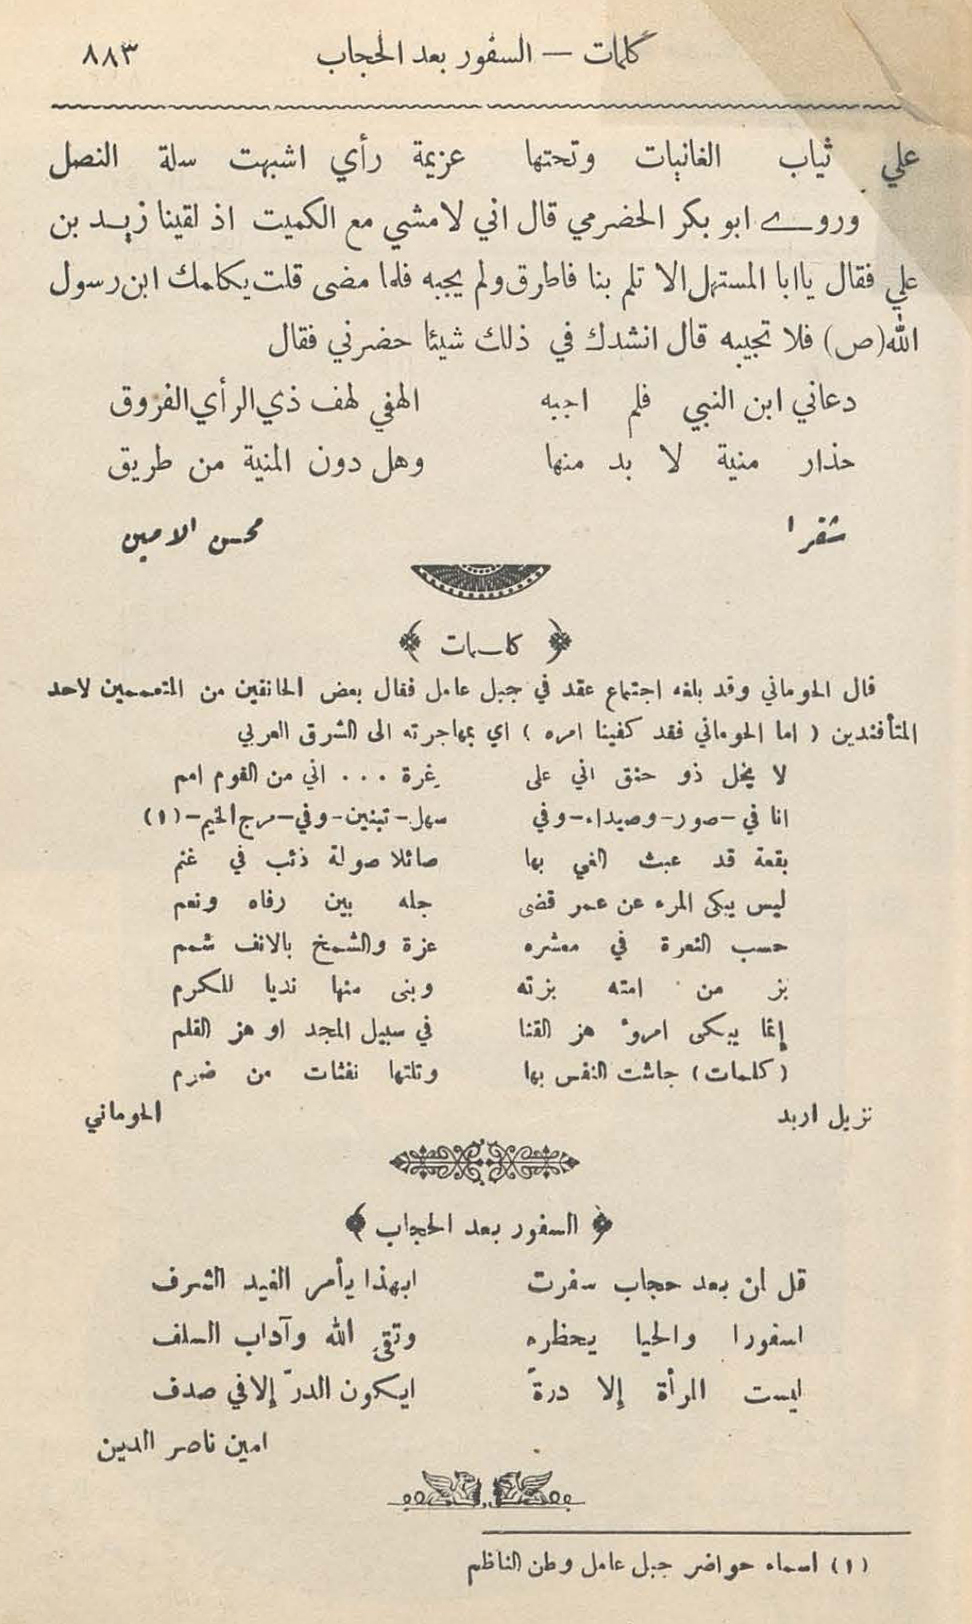 كلمات — السفور بعد الحجاب ٨٨٣
علي ثياب الغانيات وتحتها عزيمة رأي اشبهت سلة النصل
وروــے ابو بكر الحضرمي قال اني لامشي مع الكميت اذ لقينا زيـد بن
علي فقال ياابا المستهل الا تلم بنا فاطرق ولم يجبه فلما مضى قلت يكلمك ابن رسول
الله (ص) فلا تجيبه قال انشدك في ذلك شيئا حضرني فقال
دعاني ابن النبي فلم اجبه الهفي لهف ذي الرأي الفروق
حذار منية لا بد منها وهل دون المنية من طريق
شقرا محسن الامين
﴿ كلـمات ﴾
قال الحوماني وقد بلغه اجتماع عقد في جبل عامل فقال بعض الحانقين من المتعممين لاحد
المتأفندين ( اما الحوماني فقد كفينا امره ) اي بمهاجرته الى الشرق العربي
لا يخل ذو حنق اني على غرة . . . اني من القوم امم
انا في – صور – وصيداء – وفي سهل – تبنين – وفي – مرج الخيم – (١)
بقعة قد عبث الغي بها صائلا صولة ذئب في غنم
ليس يبكى المرء عن عمر قضى جله بين رفاه ونعم
حسب النعرة في معشره عزة والشمخ بالانف شمم
بز من امته بزته وبنى منها نديا للكرم
إنما يبكى امروء هز القنا في سبيل المجد او هز القلم
( كلمات ) جاشت النفس بها وتلتها نفثات من ضرم
نزيل اربد الحوماني
﴿ السفور بعد الحجاب ﴾
قل لمن بعد حجاب سفرت ابهذا يأمر الغيد الشرف
اسفورا والحيا يحظره وتقى الله وآداب السلف
ليست المرأة إلا درةً ايكون الدرّ إلا في صدف
امين ناصر الدين
(١) اسماء حواضر جبل عامل وطن الناظم